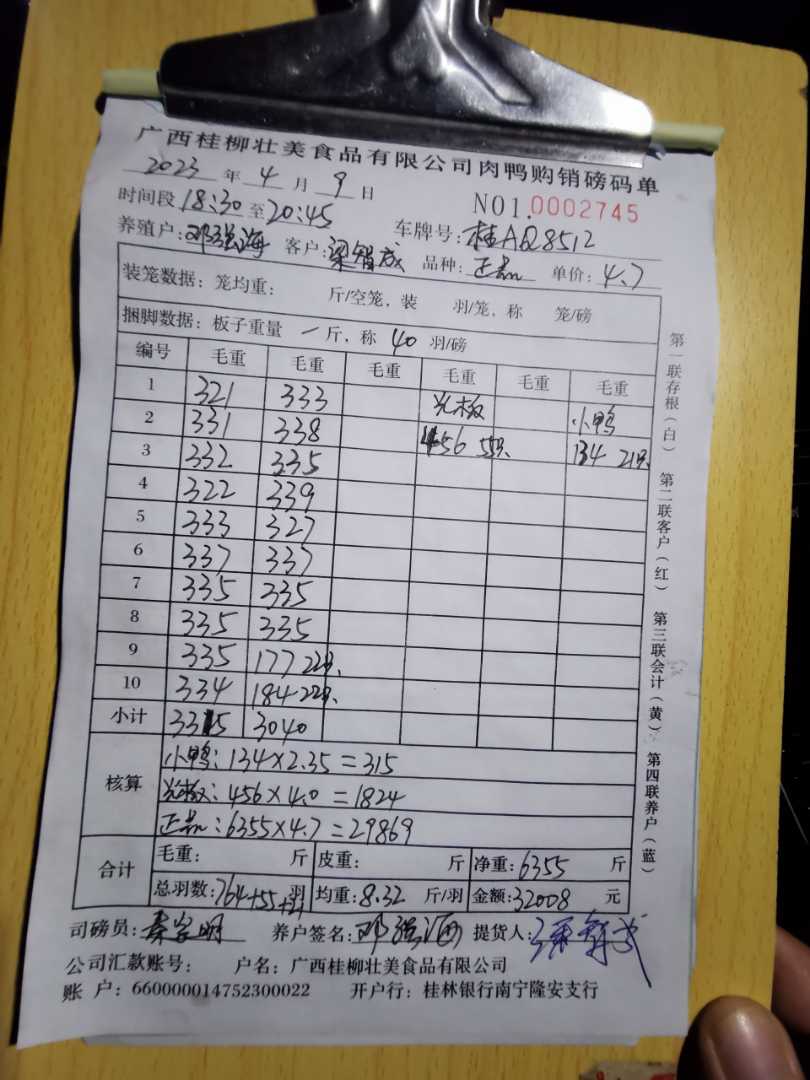 广西桂柳壮美食品有限公司肉鸭购销磅码单
2023 年 4 月 9 日
NO1.0002745
时间段 18:30 至 20:45 车牌号: 桂AQ8512
养殖户: 邓强海 客户: 梁智成 品种: 正品 单价: 4.7
装笼数据: 笼均重: 斤/空笼, 装 羽/笼, 称 笼/磅
捆脚数据: 板子重量 一 斤, 称 40 羽/磅
编号 毛重 毛重 毛重 毛重 毛重 毛重
1 321 333 光板 小鸭
2 331 338 456 55只 134 21只
3 332 335
4 322 339
5 333 327
6 337 337
7 335 335
8 335 335
9 335 177 22只
10 334 184 22只
小计 3315 3040
核算 小鸭: 134×2.35=315
光板: 456×4.0=1824
正品: 6355×4.7=29869
合计 毛重: 斤 皮重: 斤 净重: 6355 斤
总羽数: 764+55+21 羽 均重: 8.32 斤/羽 金额: 32008 元
司磅员: 秦家明 养户签名: 邓强海 提货人:
公司汇款账号: 户名: 广西桂柳壮美食品有限公司
账 户: 660000014752300022 开户行: 桂林银行南宁隆安支行
第一联存根(白) 第二联客户(红) 第三联会计(黄) 第四联养户(蓝)